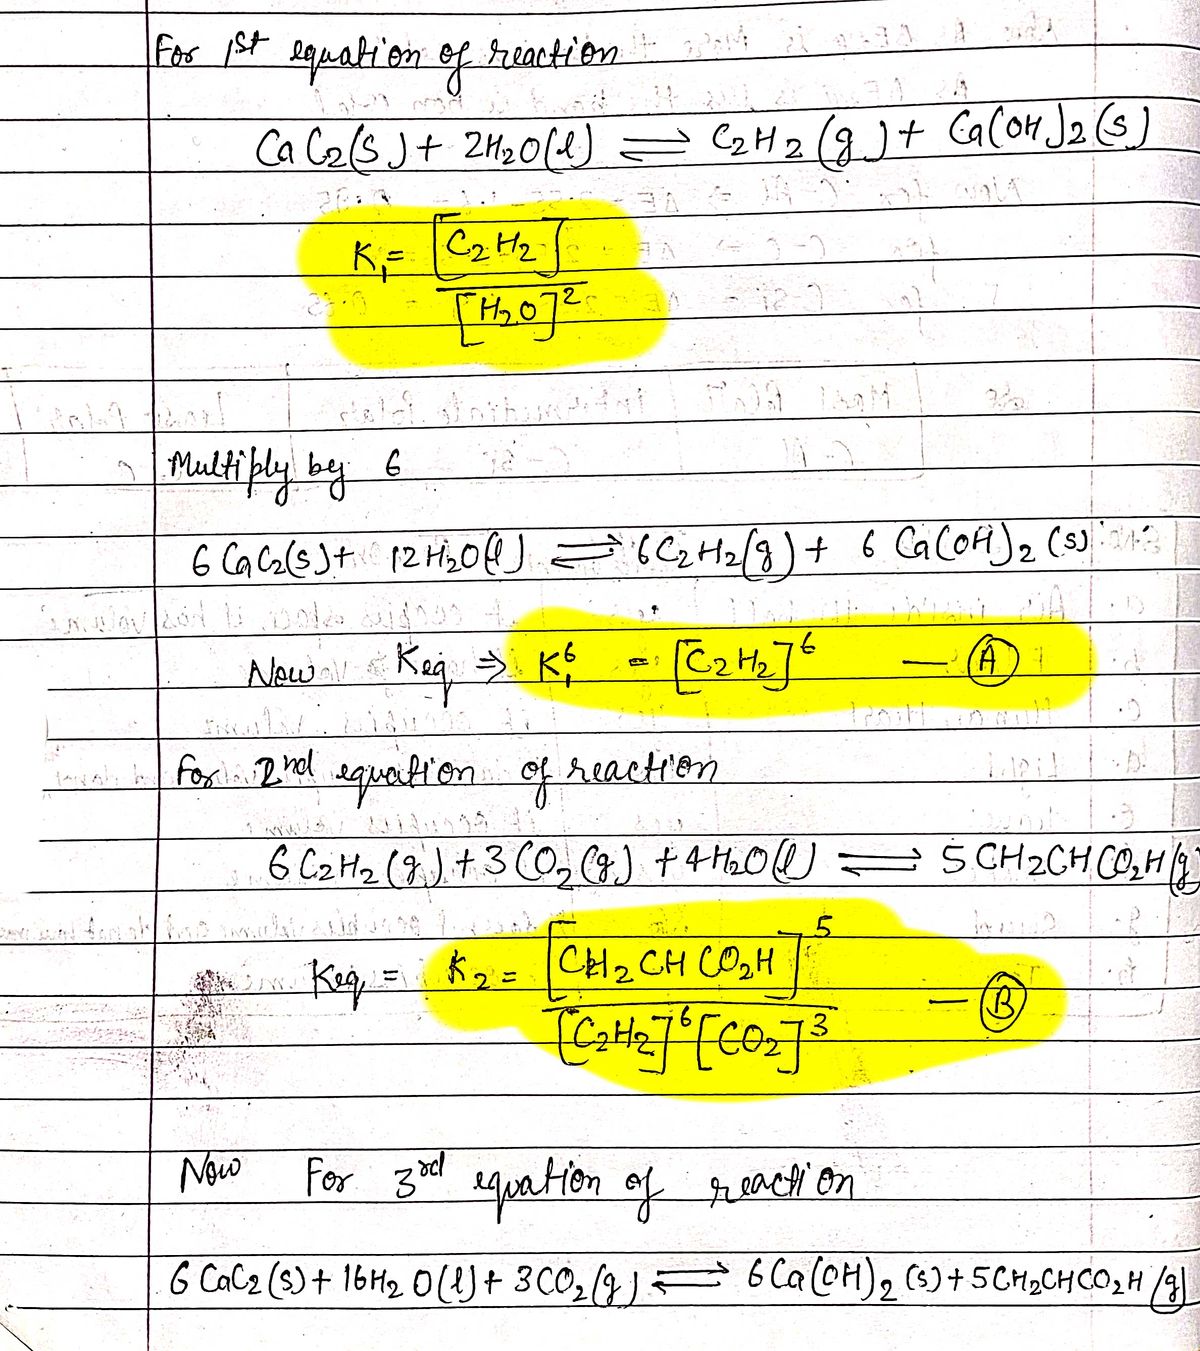 For 1st equation of reaction
CaC2(s) + 2H2O(l) ⇌ C2H2(g) + Ca(OH)2(s)
K1 = [C2H2] / [H2O]^2
Multiply by 6
6CaC2(s) + 12H2O(l) ⇌ 6C2H2(g) + 6Ca(OH)2(s)
Now Keq ⇒ K1^6 = [C2H2]^6 — (A)
For 2nd equation of reaction
6C2H2(g) + 3CO2(g) + 4H2O(l) ⇌ 5CH2CHCO2H(g)
Keq = K2 = [CH2CHCO2H]^5 / [C2H2]^6[CO2]^3 — (B)
Now For 3rd equation of reaction
6CaC2(s) + 16H2O(l) + 3CO2(g) ⇌ 6Ca(OH)2(s) + 5CH2CHCO2H(g)